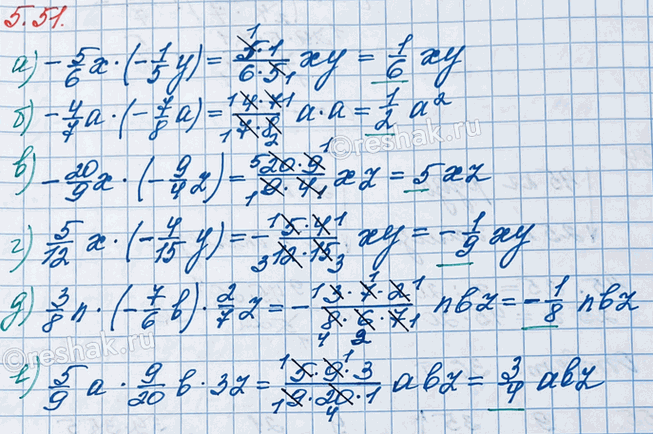 5.51.
а) -5/6 x · (-1/5 y) = 5·1/6·5 xy = 1/6 xy
б) -4/7 a · (-7/8 a) = 4·7/7·8 a·a = 1/2 a²
в) -20/9 x · (-9/4 z) = 20·9/9·4 xz = 5xz
г) 5/12 x · (-4/15 y) = - 5·4/12·15 xy = -1/9 xy
д) 3/8 n · (-7/6 b) · 2/7 z = - 3·7·2/8·6·7 nbz = -1/8 nbz
е) 5/9 a · 9/20 b · 3z = 5·9·3/9·20·1 abz = 3/4 abz
reshak.ru